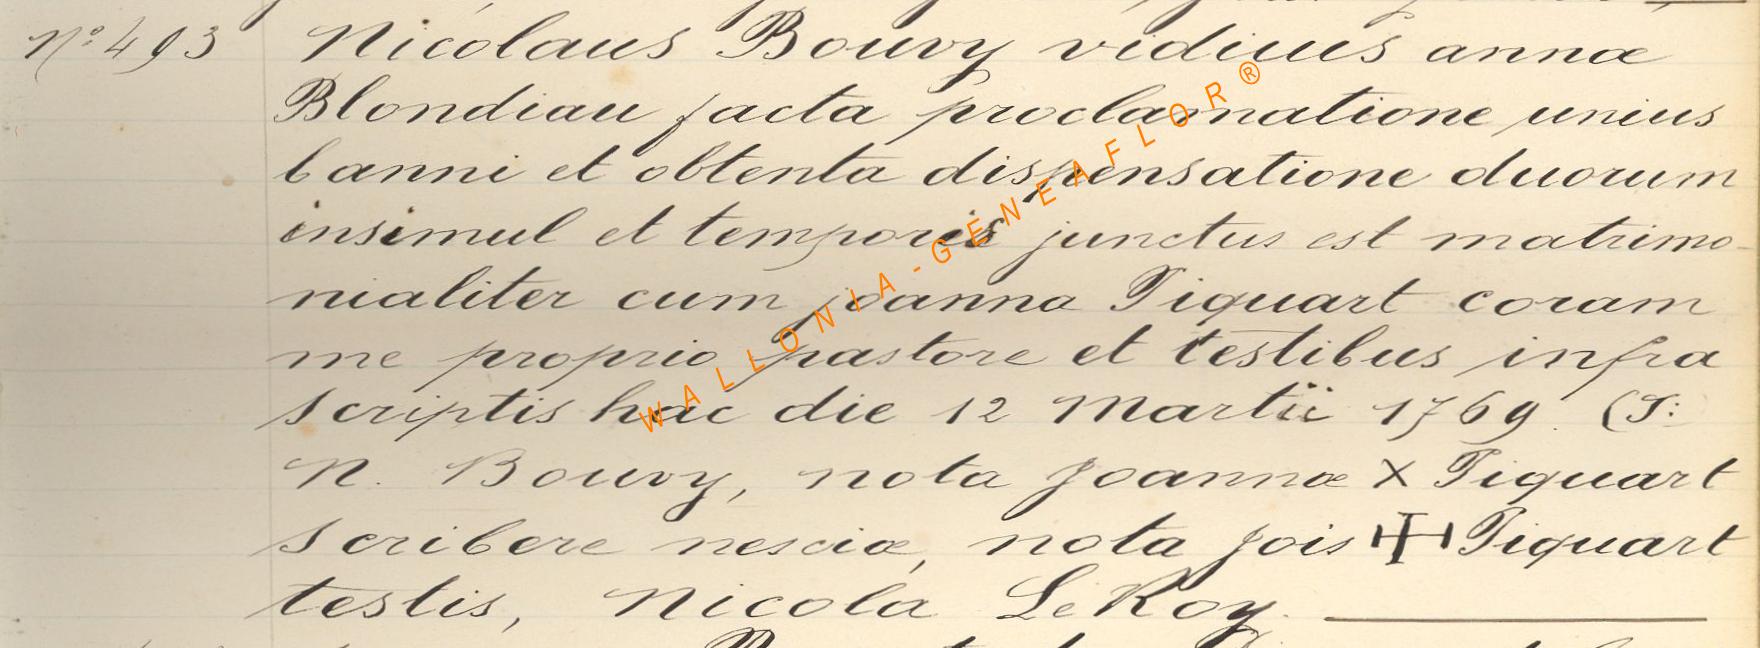 N° 493 Nicolaus Bouvy viduus annæ
Blondiau facta proclamatione unius
banni et obtenta dispensatione duorum
insimul et temporis junctus est matrimo-
nialiter cum joanna Piquart coram
me proprio pastore et testibus infra
scriptis hac die 12 Martii 1769. (S:
N. Bouvy, nota Joannæ X Piquart
scribere nesciæ, nota jois Piquart
testis, Nicola LeRoy.
WALLONIA-GENEAFLOR®